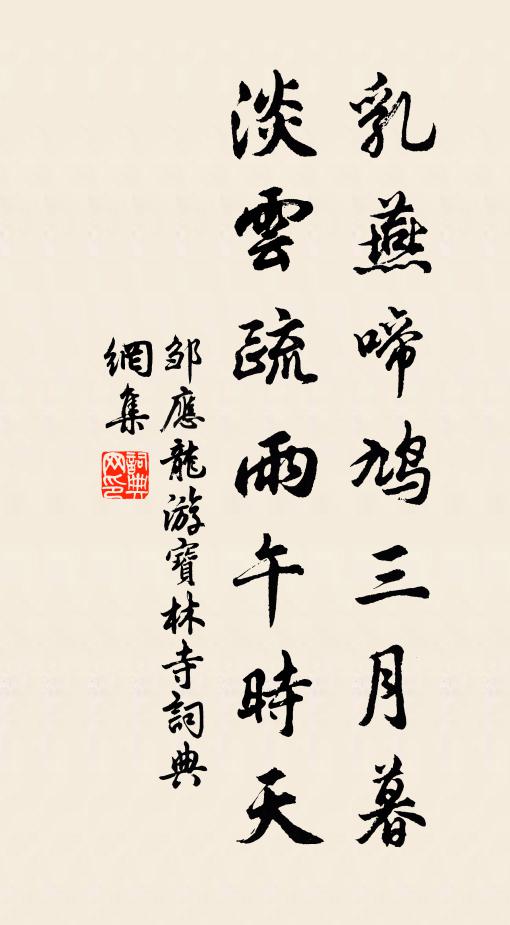 乳燕啼鳩三月暮
淡雲疏雨午時天
鄒應龍游寶林寺詞典
網集
詞典網印